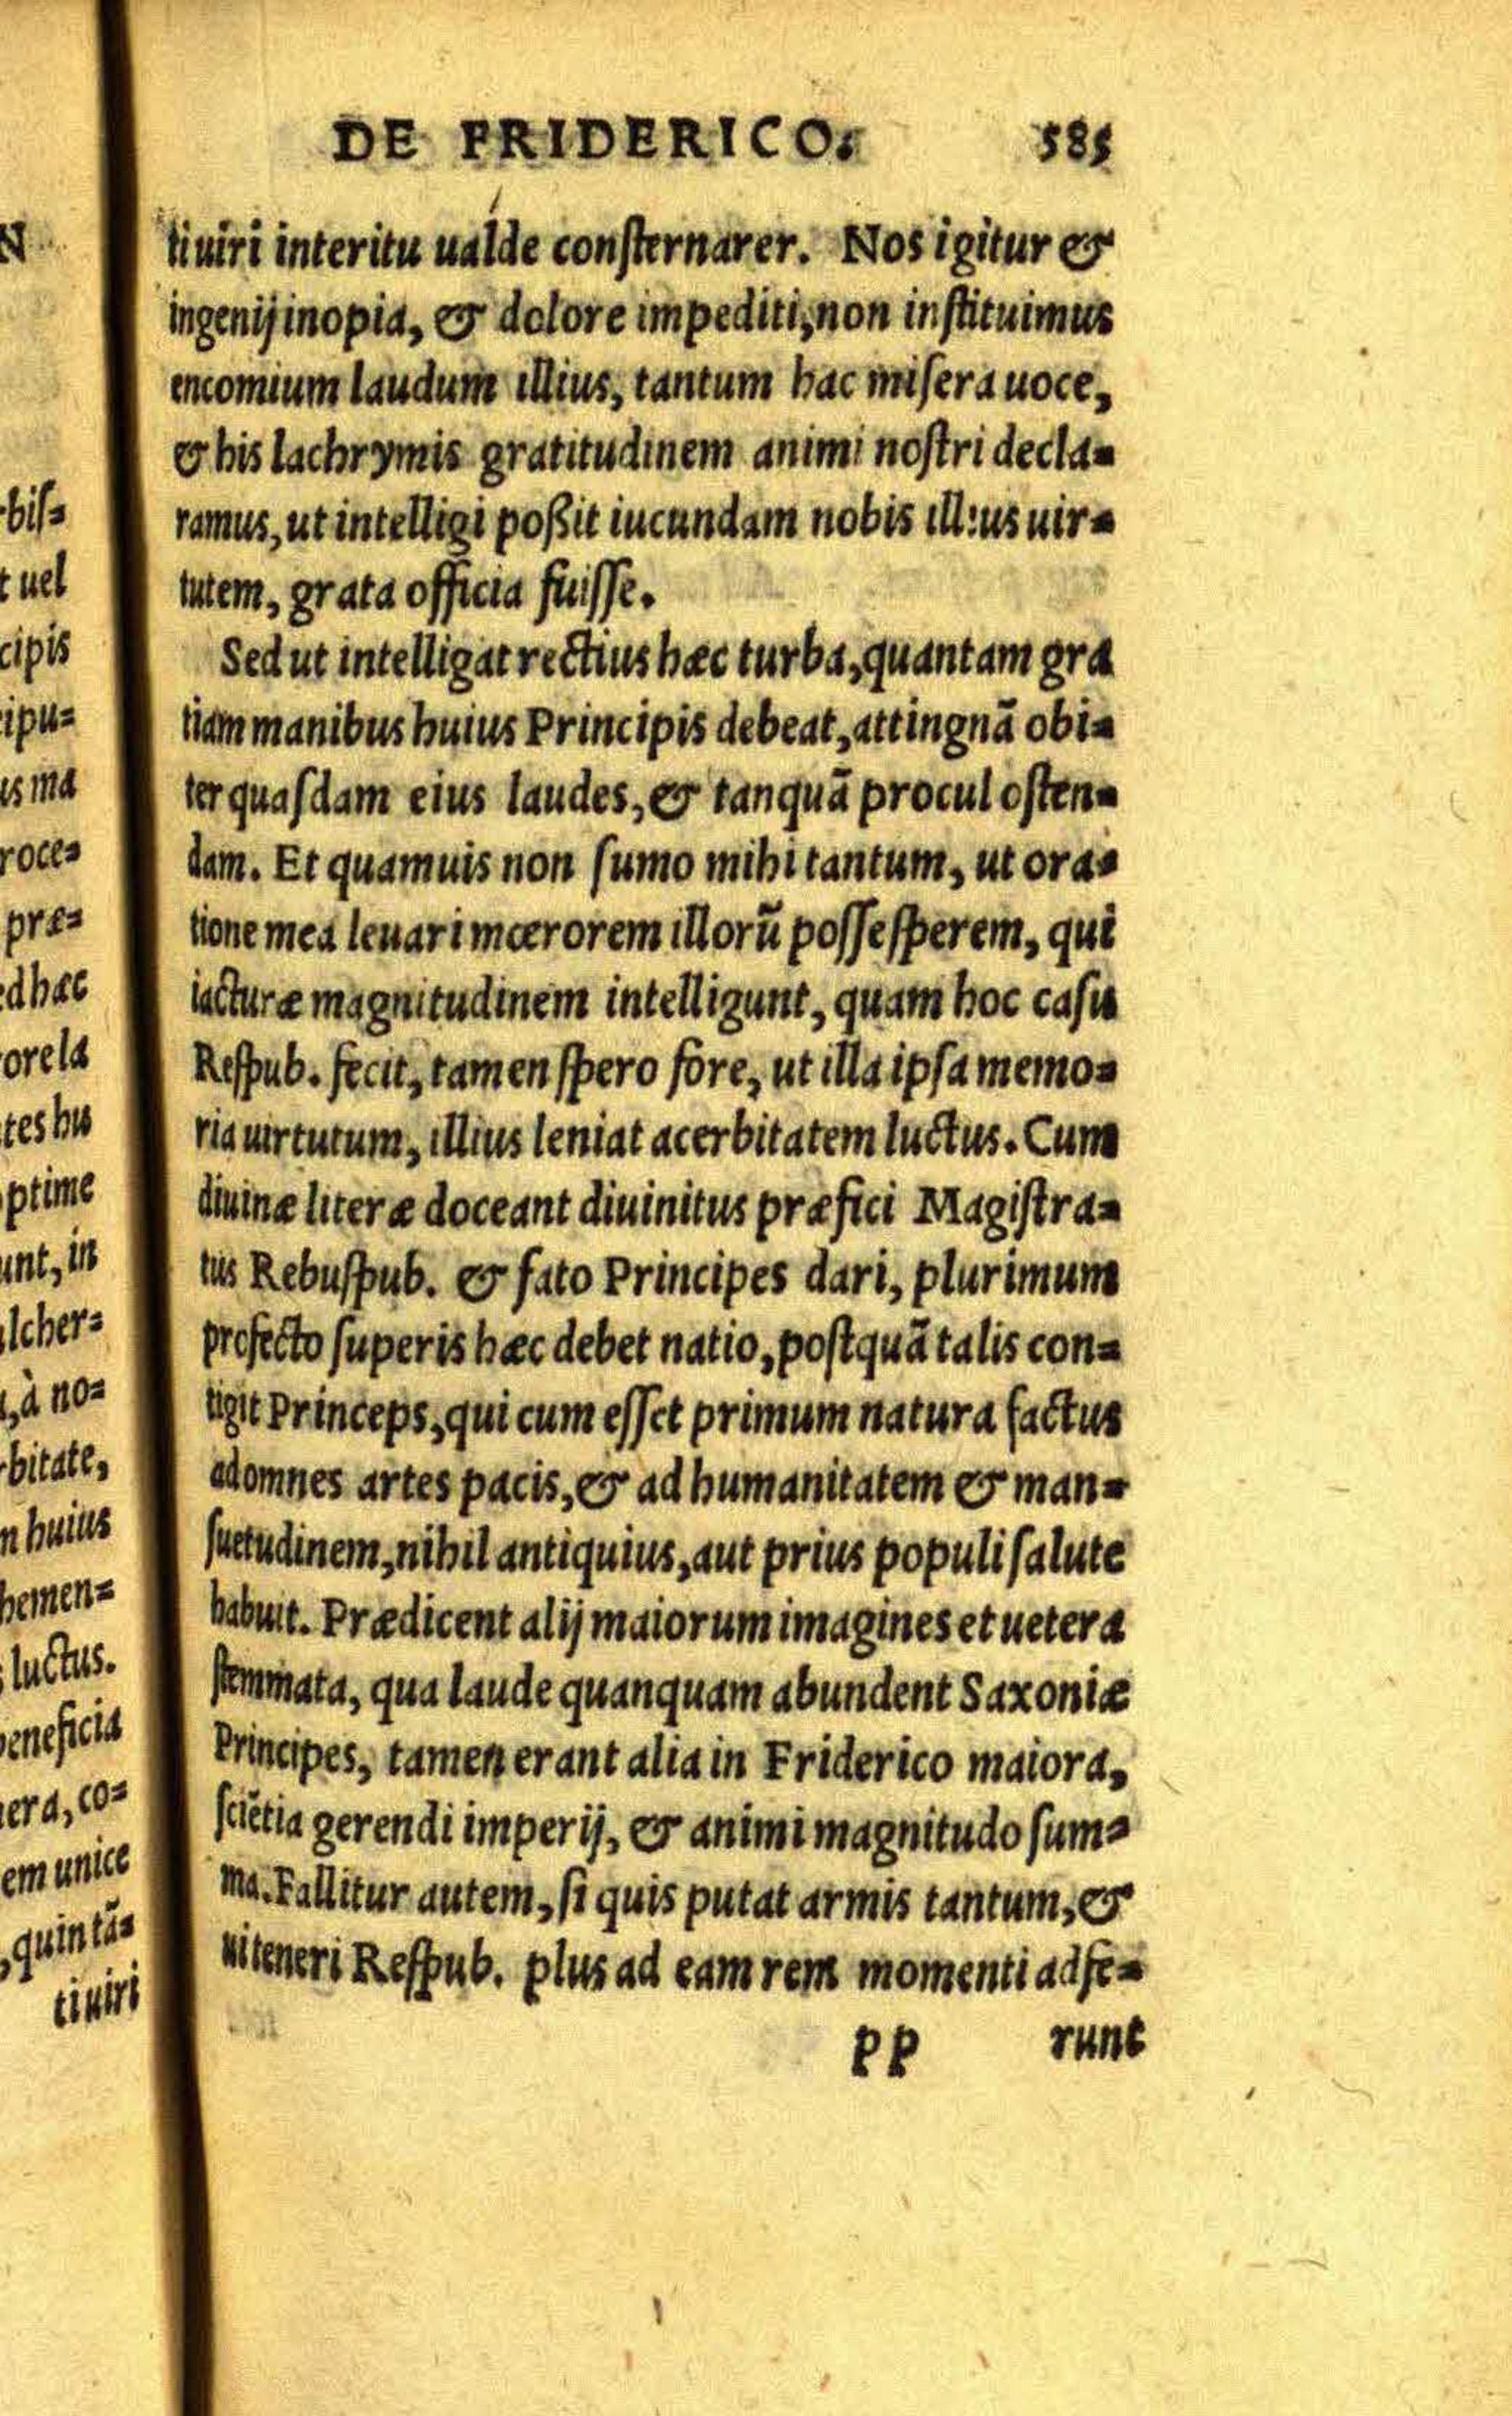 N
bis=
t uel
cipis
ipu=
us ma
roce=
præ=
ed hæc
ore la
tes hu
ptime
unt, in
lcher=
, à no=
rbitate,
n huius
hemen=
luctus.
beneficia
nera, co=
em unice
, quin tã=
ti uiri
DE FRIDERICO. 585
ti uiri interitu ualde consternarer. Nos igitur &
ingenij inopia, & dolore impediti, non instituimus
encomium laudum illius, tantum hac misera uoce,
& his lachrymis gratitudinem animi nostri decla=
ramus, ut intelligi poßit iucundam nobis illius uir=
tutem, grata officia fuisse.
Sed ut intelligat rectius hæc turba, quantam gra
tiam manibus huius Principis debeat, attingnã obi=
ter quasdam eius laudes, & tanquã procul osten=
dam. Et quamuis non sumo mihi tantum, ut ora=
tione mea leuari mœrorem illorũ posse sperem, qui
iacturæ magnitudinem intelligunt, quam hoc casu
Respub. fecit, tamen spero fore, ut illa ipsa memo=
ria uirtutum, illius leniat acerbitatem luctus. Cum
diuinæ literæ doceant diuinitus præfici Magistra=
tus Rebuspub. & fato Principes dari, plurimum
profecto superis hæc debet natio, postquã talis con=
tigit Princeps, qui cum esset primum natura factus
ad omnes artes pacis, & ad humanitatem & man=
suetudinem, nihil antiquius, aut prius populi salute
habuit. Prædicent alij maiorum imagines et uetera
stemmata, qua laude quanquam abundent Saxoniæ
Principes, tamen erant alia in Friderico maiora,
sciẽtia gerendi imperij, & animi magnitudo sum=
ma. Fallitur autem, si quis putat armis tantum, &
ui teneri Respub. plus ad eam rem momenti adfe=
PP runt